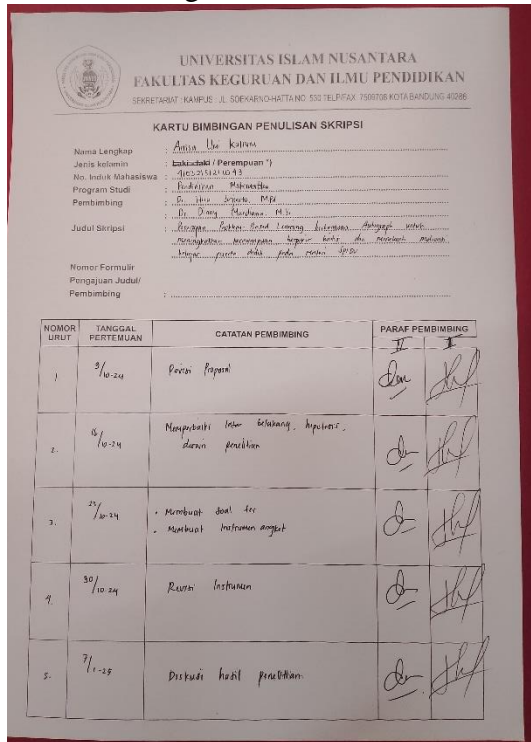 UNIVERSITAS ISLAM NUSANTARA
FAKULTAS KEGURUAN DAN ILMU PENDIDIKAN
SEKRETARIAT : KAMPUS : JL. SOEKARNO-HATTA NO. 530 TELP/FAX. 7509708 KOTA BANDUNG 40286
KARTU BIMBINGAN PENULISAN SKRIPSI
Nama Lengkap : Anisa
Jenis kelamin : Laki-laki / Perempuan *)
No. Induk Mahasiswa :
Program Studi : Pendidikan Matematika
Pembimbing : Dr.
Dr.
Judul Skripsi : Penerapan Problem Based Learning berbantuan untuk
meningkatkan kemampuan berpikir kritis dan
belajar peserta didik pada materi SPLDV
Nomor Formulir
Pengajuan Judul/
Pembimbing :
NOMOR URUT TANGGAL PERTEMUAN CATATAN PEMBIMBING PARAF PEMBIMBING
II I
1 9/10-24 Revisi Proposal
2. 16/10-24 Memperbaiki latar belakang, hipotesis,
desain penelitian
3. 23/10-24 • Membuat soal tes
• Membuat Instrumen angket
4. 30/10-24 Revisi Instrumen
5. 7/1-25 Diskusi hasil penelitian